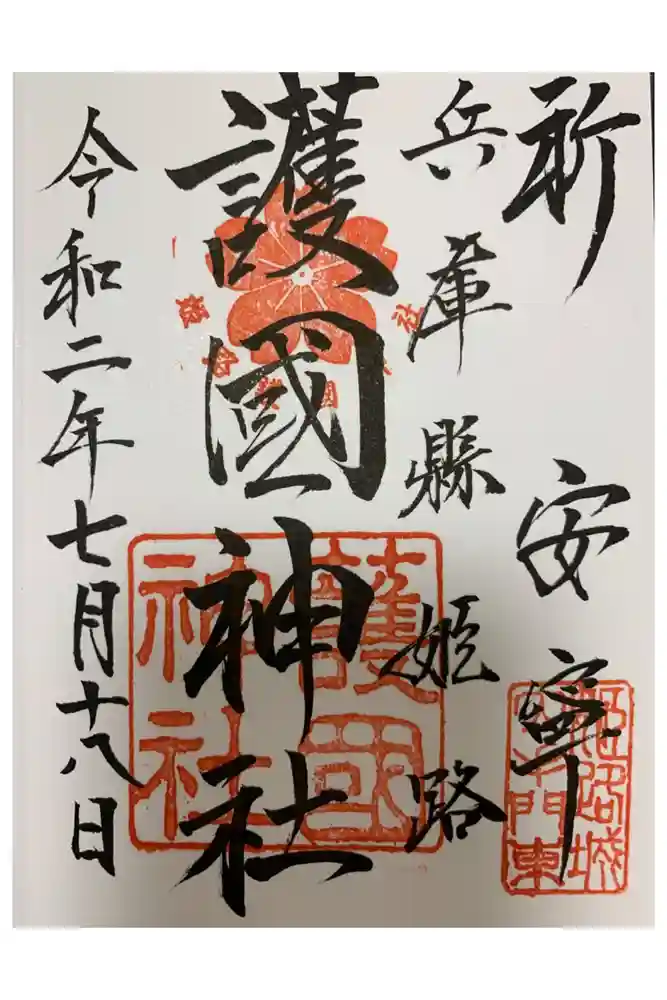 祈 安寧
兵庫縣 姫路
護國神社
令和二年七月十八日
護國
神社
姫路城
門東